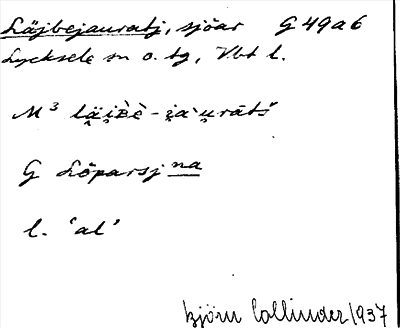 Läjbejauratj, sjöar G 49 a 6
Lycksele sn o. tg, Vbt l.
M³ lä̭i̭ʙè-i̭a`u̯rātš
G Löparsjna
l. 'al'
Björn Collinder 1937